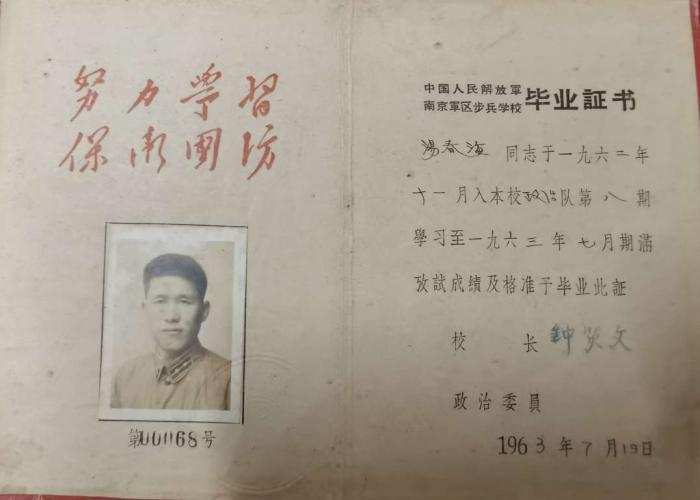 努力学習
保衛國防
第00068号
中国人民解放軍
南京軍区步兵学校
毕业証书
湯春海 同志于一九六二年
十一月入本校政治队第八期
學习至一九六三年七月期滿
攷試成績及格准予毕业此証
校 长 钟贤文
政治委員
1963年7月19日